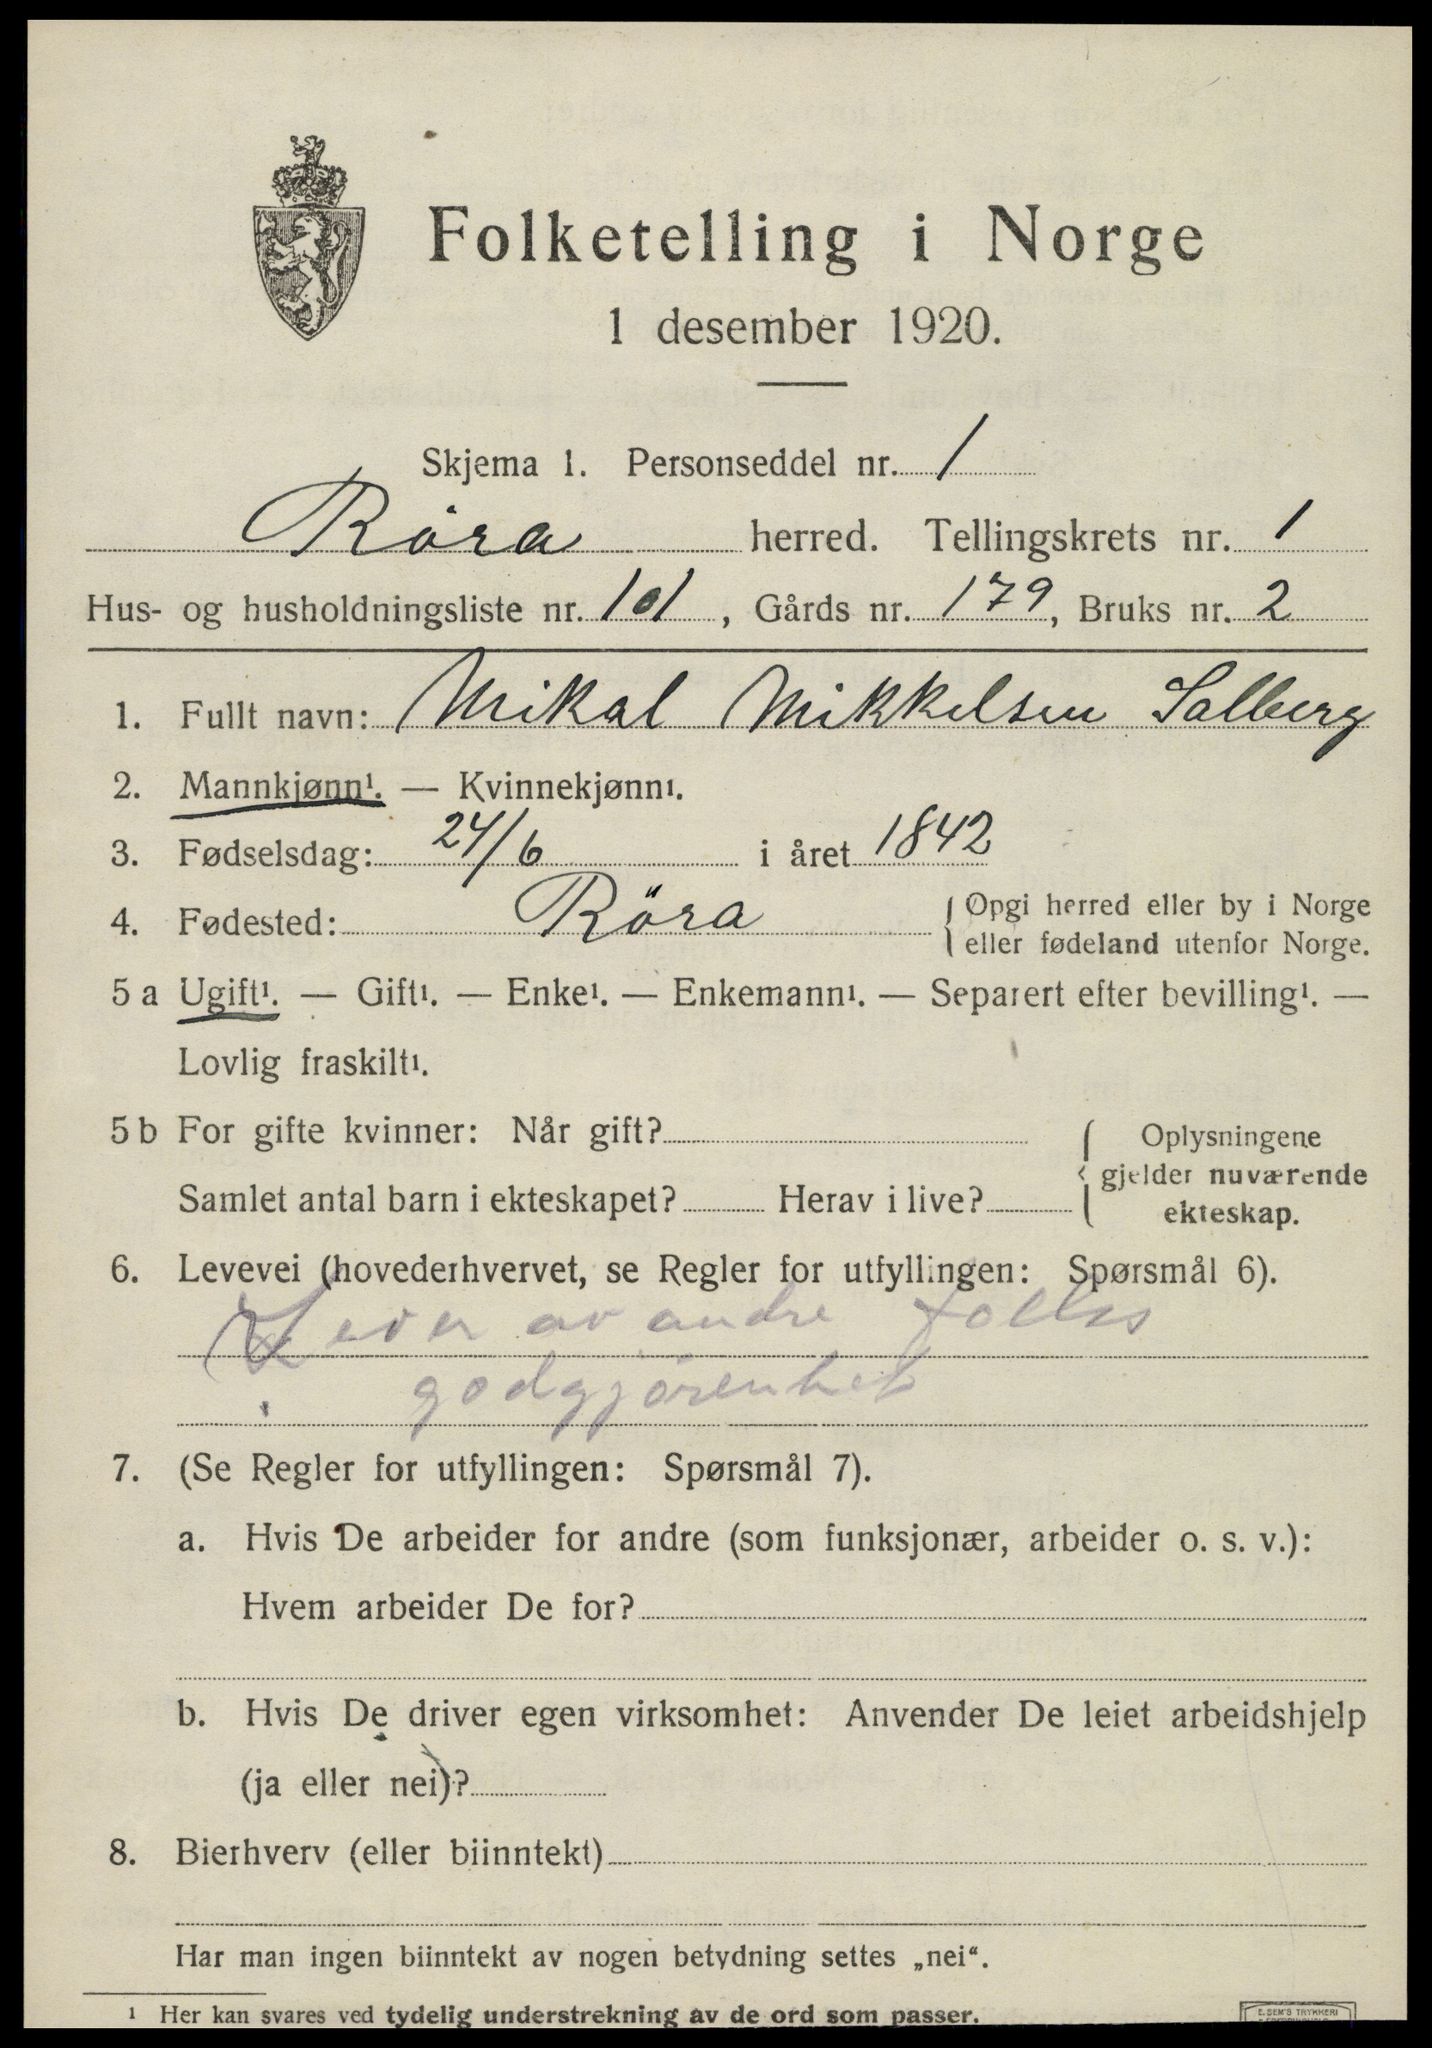 Folketelling i Norge
1 desember 1920.
Skjema 1. Personseddel nr. 1
Röra herred. Tellingskrets nr. 1
Hus- og husholdningsliste nr. 101, Gårds nr. 179, Bruks nr. 2
1. Fullt navn: Mikal Mikkelsen Salberg
2. Mannkjønn¹. — Kvinnekjønn¹.
3. Fødselsdag: 24/6 i året 1842
4. Fødested: Röra { Opgi herred eller by i Norge
eller fødeland utenfor Norge.
5 a Ugift¹. — Gift¹. — Enke¹. — Enkemann¹. — Separert efter bevilling¹. —
Lovlig fraskilt¹.
5 b For gifte kvinner: Når gift?
Samlet antal barn i ekteskapet? Herav i live?
{ Oplysningene
gjelder nuværende
ekteskap.
6. Levevei (hovederhvervet, se Regler for utfyllingen: Spørsmål 6).
Lever av andre folks
godgjörenhet
7. (Se Regler for utfyllingen: Spørsmål 7).
a. Hvis De arbeider for andre (som funksjonær, arbeider o. s. v.):
Hvem arbeider De for?
b. Hvis De driver egen virksomhet: Anvender De leiet arbeidshjelp
(ja eller nei)?
8. Bierhverv (eller biinntekt)
Har man ingen biinntekt av nogen betydning settes „nei“.
¹ Her kan svares ved tydelig understrekning av de ord som passer.
E. SEM'S TRYKKERI